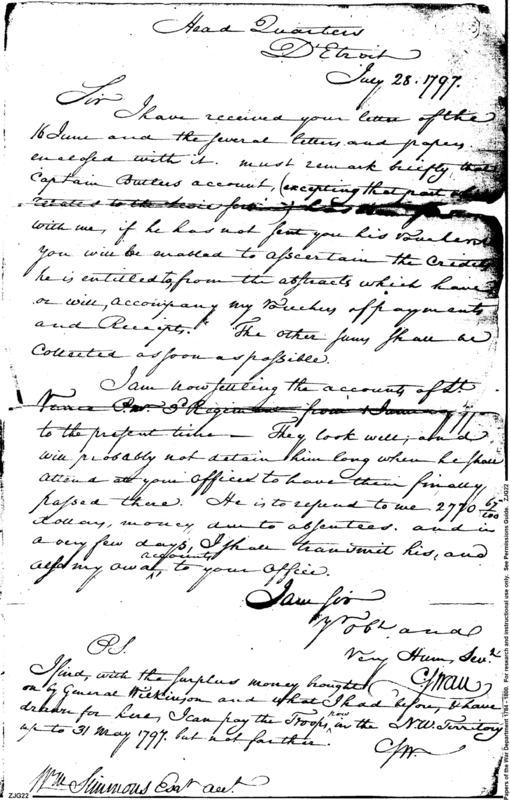 Head Quarters
D'Etroit
July 28. 1797.
Sir
I have received your letter of the
16 June and the several letters, and papers
enclosed with it. must remark briefly, that
Captain Butlers account, (excepting that part
relates to the
with me, if he has not sent you his Vouchers
you will be enabled to ascertain the Credits
he is entitled to, from the abstracts which have
or will, accompany my Vouchers of payments
and Receipts." The other sums shall be
Collected as soon as possible.
I am now settling the accounts of Lt.
Vance Regiment from 1 January
to the present time — They look well; and
will probably not detain him long when he shall
attend at your Office to have them finally
passed there. He is to repend to me 2770 67/100
dollars, money due to absentees. and in
a very few days, I shall transmit his, and
also my own accounts to your Office.
I am Sir
Yr obt. and
Very Hum. Servt.
CSwan
P.S.
I find, with the surplus money brought
on by General Wilkinson and what I had before, & have
drawn for here, I can pay the Troops, now in the N.W. Territory
up to 31 May 1797. but not farther.
CSW.
Wm Simmons Esqr. acct.
ZJG22
Papers of the War Department 1784 - 1800. For research and instructional use only. See Permissions Guide. ZJG22